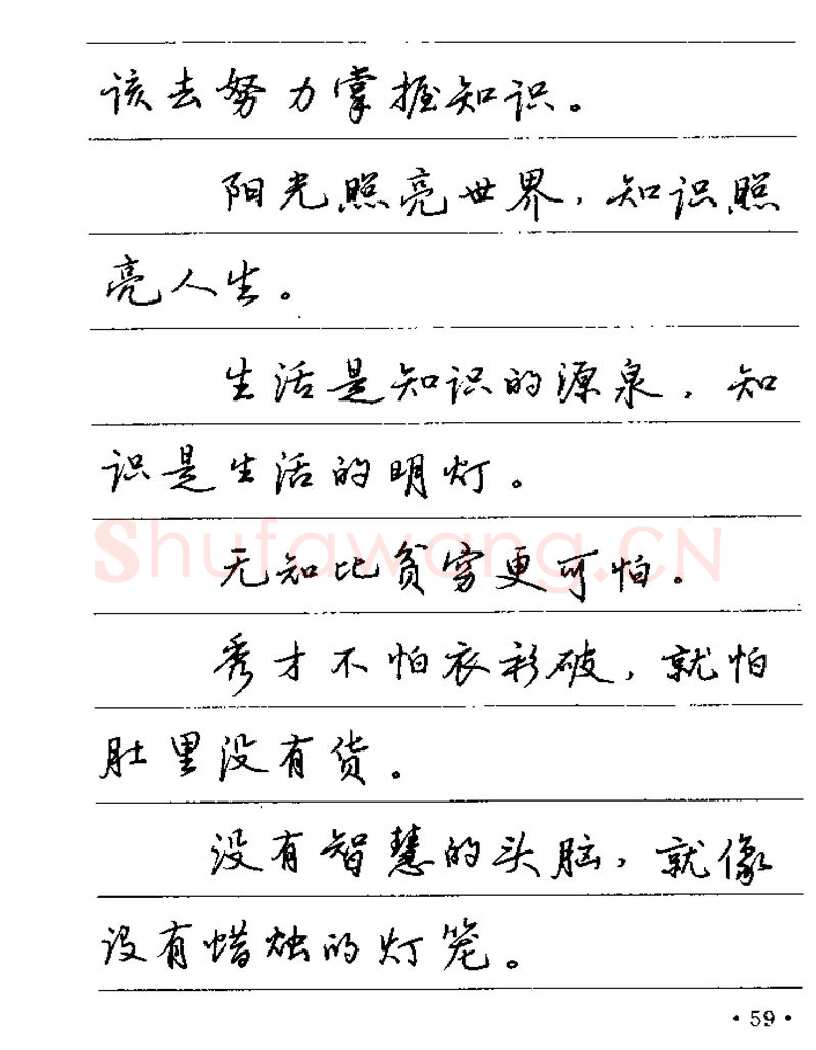 该去努力掌握知识。
阳光照亮世界，知识照
亮人生。
生活是知识的源泉，知
识是生活的明灯。
Shufawang.CN
无知比贫穷更可怕。
秀才不怕衣衫破，就怕
肚里没有货。
没有智慧的头脑，就像
没有蜡烛的灯笼。
·59·